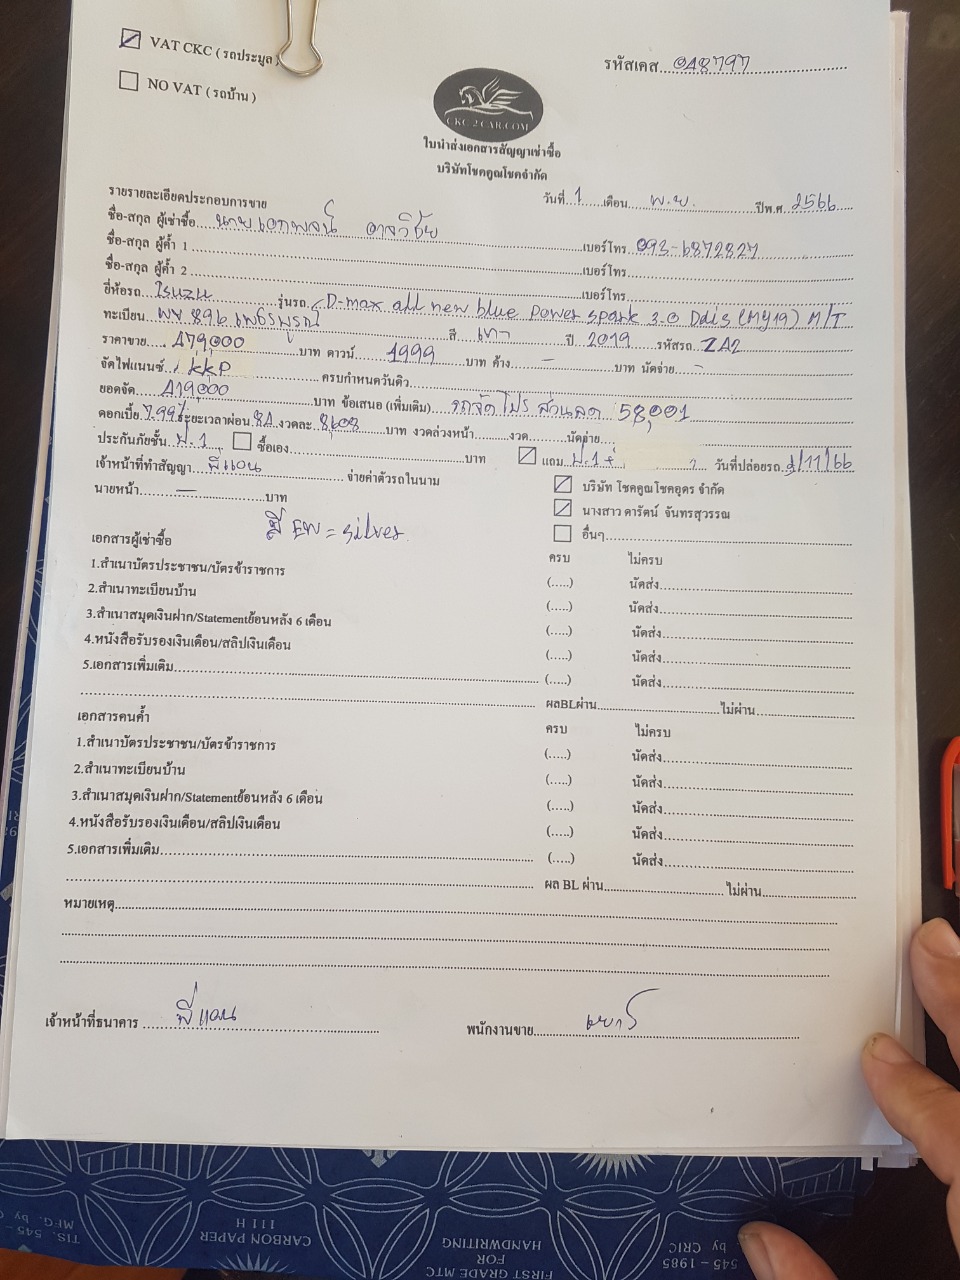 VAT CKC ( รถประมูล )
รหัสเคส 0A8797
NO VAT ( รถบ้าน )
CKC 2 CAR.COM
ใบนำส่งเอกสารสัญญาเช่าซื้อ
บริษัทโชคคูณโชคจำกัด
รายรายละเอียดประกอบการขาย
วันที่ 1 เดือน พ.ย. ปีพ.ศ. 2566
ชื่อ-สกุล ผู้เช่าซื้อ นายเอกพจน์ อาจวิชัย เบอร์โทร 093-6872827
ชื่อ-สกุล ผู้ค้ำ 1 เบอร์โทร
ชื่อ-สกุล ผู้ค้ำ 2 เบอร์โทร
ยี่ห้อรถ Isuzu รุ่นรถ D-max all new blue power spark 3.0 Ddis (MY19) M/T
ทะเบียน 896 เพชรบูรณ์ สี เทา ปี 2019 รหัสรถ ZA2
ราคาขาย 479,000 บาท ดาวน์ 1999 บาท ค้าง - บาท นัดจ่าย -
จัดไฟแนนซ์ kkp ครบกำหนดวันดิว
ยอดจัด 419,000 บาท ข้อเสนอ (เพิ่มเติม) รถจัดโปร ส่วนลด 58,001
ดอกเบี้ย 7.99% ระยะเวลาผ่อน 84 งวดละ 8608 บาท งวดล่วงหน้า งวด นัดจ่าย
ประกันภัยชั้น ป.1 ซื้อเอง บาท แถม ป.1 + วันที่ปล่อยรถ /11/66
เจ้าหน้าที่ทำสัญญา พี่แอน จ่ายค่าตัวรถในนาม
บริษัท โชคคูณโชคอุดร จำกัด
นายหน้า - บาท
นางสาว ดารัตน์ จันทรสุวรรณ
อื่นๆ
มี EW = Silver
เอกสารผู้เช่าซื้อ ครบ ไม่ครบ
1.สำเนาบัตรประชาชน/บัตรข้าราชการ (.....) นัดส่ง
2.สำเนาทะเบียนบ้าน (.....) นัดส่ง
3.สำเนาสมุดเงินฝาก/Statementย้อนหลัง 6 เดือน (.....) นัดส่ง
4.หนังสือรับรองเงินเดือน/สลิปเงินเดือน (.....) นัดส่ง
5.เอกสารเพิ่มเติม (.....) นัดส่ง
ผลBLผ่าน ไม่ผ่าน
เอกสารคนค้ำ ครบ ไม่ครบ
1.สำเนาบัตรประชาชน/บัตรข้าราชการ (.....) นัดส่ง
2.สำเนาทะเบียนบ้าน (.....) นัดส่ง
3.สำเนาสมุดเงินฝาก/Statementย้อนหลัง 6 เดือน (.....) นัดส่ง
4.หนังสือรับรองเงินเดือน/สลิปเงินเดือน (.....) นัดส่ง
5.เอกสารเพิ่มเติม (.....) นัดส่ง
ผล BL ผ่าน ไม่ผ่าน
หมายเหตุ
เจ้าหน้าที่ธนาคาร พี่แอน
พนักงานขาย
FIRST GRADE MTC
FOR
HANDWRITING
CARBON PAPER
111 H
TIS. 545 -
MFG. by
545 - 1985
by CRIC